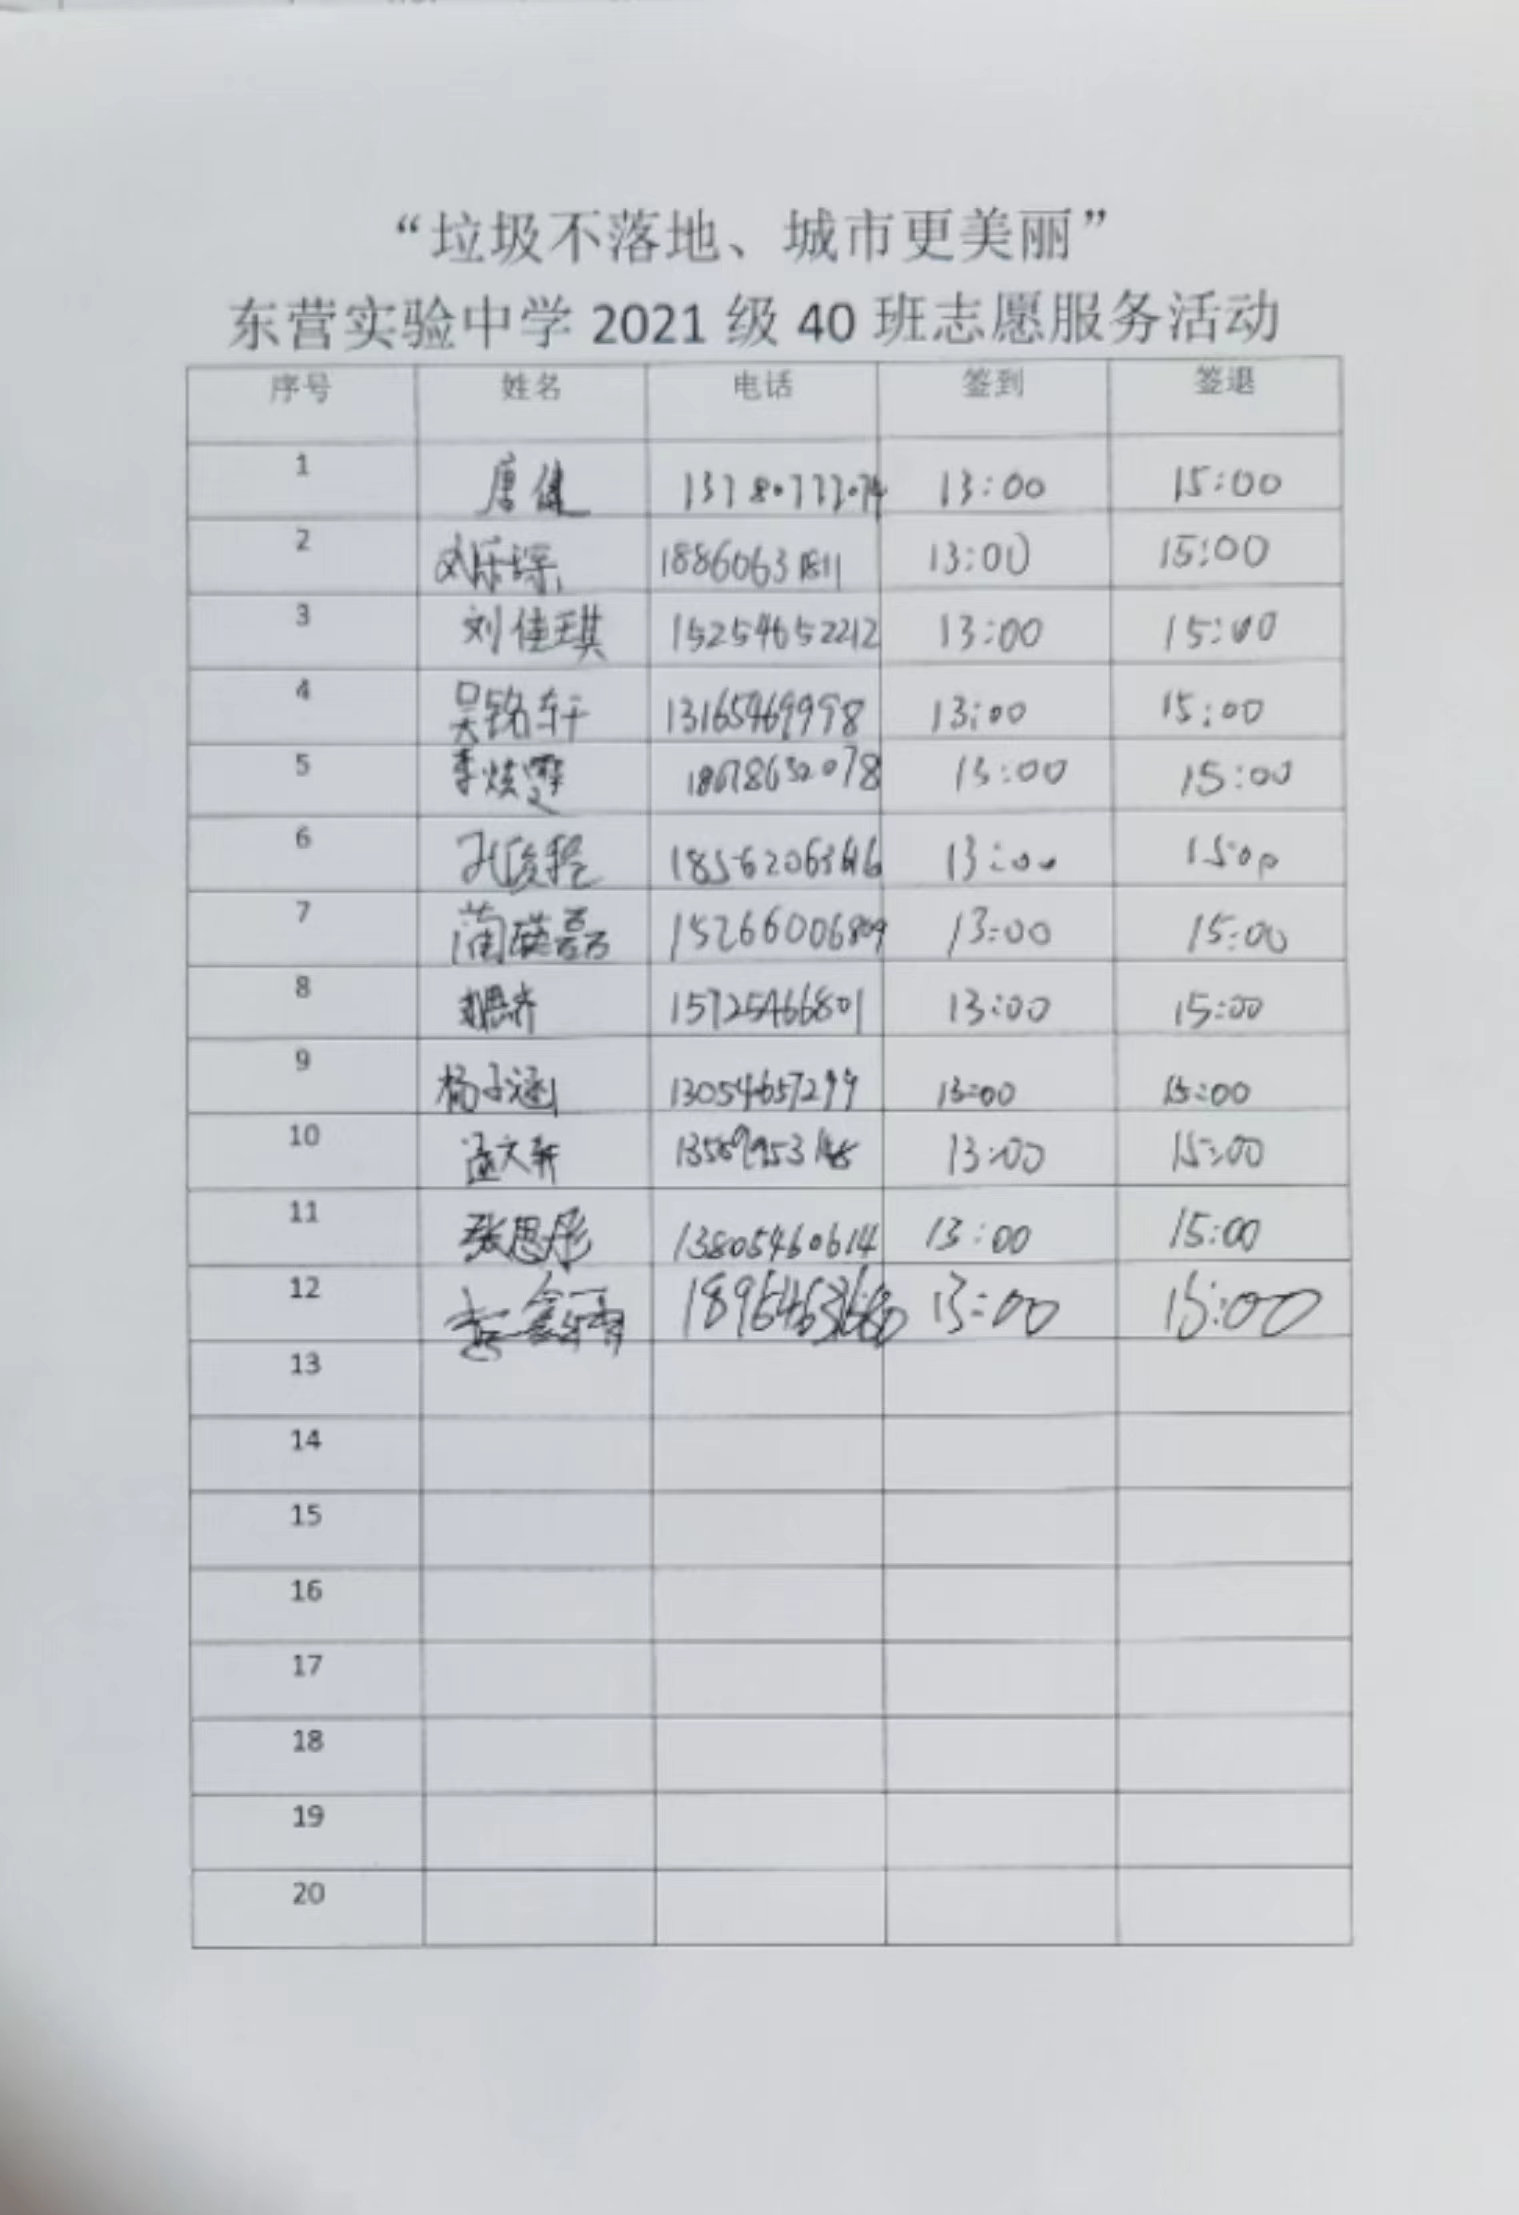 “垃圾不落地、城市更美丽”
东营实验中学 2021 级 40 班志愿服务活动
序号 姓名 电话 签到 签退
1 唐健 13:00 15:00
2 13:00 15:00
3 刘佳琪 15254652212 13:00 15:00
4 吴铭轩 13165469998 13:00 15:00
5 13:00 15:00
6 13:00 15:00
7 13:00 15:00
8 15725466801 13:00 15:00
9 杨子涵 13054657299 13:00 15:00
10 孟文轩 13:00 15:00
11 张思彤 13805460614 13:00 15:00
12 13:00 15:00
13
14
15
16
17
18
19
20